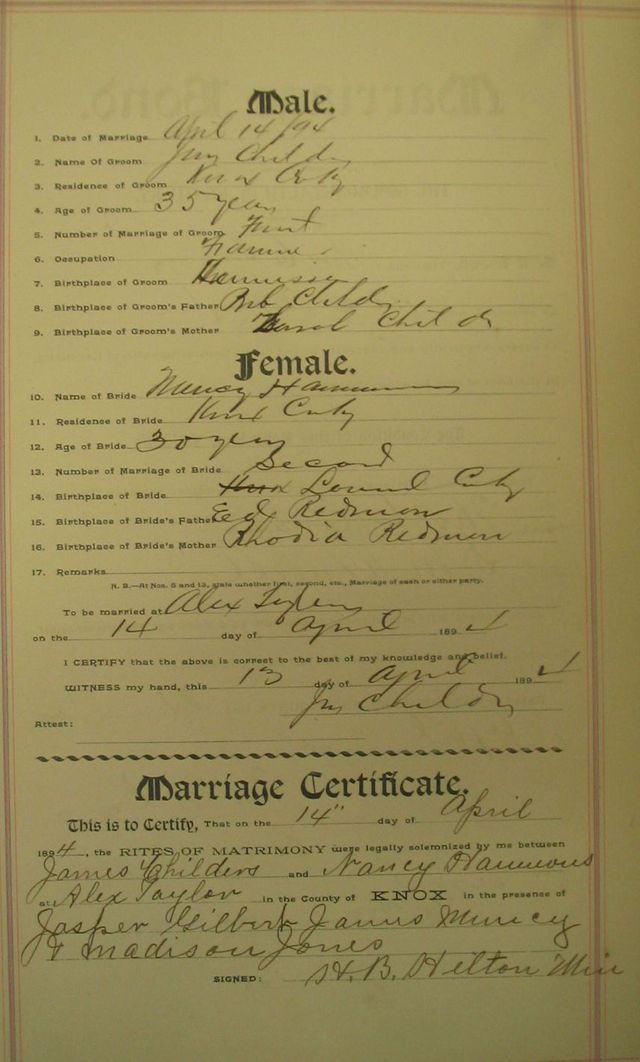 Male.
1. Date of Marriage April 14/94
2. Name Of Groom Jas Childrs
3. Residence of Groom Knox Cnty
4. Age of Groom 35 years
5. Number of Marriage of Groom First
6. Occupation Farmer
7. Birthplace of Groom Tennissee
8. Birthplace of Groom's Father Childrs
9. Birthplace of Groom's Mother Childrs
Female.
10. Name of Bride Nancy Hammons
11. Residence of Bride Knox Cnty
12. Age of Bride 30 years
13. Number of Marriage of Bride Second
14. Birthplace of Bride Laurel Cnty
15. Birthplace of Bride's Father Ed Redmon
16. Birthplace of Bride's Mother Rhodia Redmon
17. Remarks
N. B.—At Nos. 5 and 13, state whether first, second, etc., Marriage of each or either party.
To be married at Alex Taylors
on the 14 day of April 1894
I CERTIFY that the above is correct to the best of my knowledge and belief.
WITNESS my hand, this 13 day of April 1894
Jas Childrs
Attest:
Marriage Certificate.
This is to Certify, That on the 14" day of April
1894, the RITES OF MATRIMONY were legally solemnized by me between
James Childers and Nancy Hammons
at Alex Taylor in the County of KNOX in the presence of
Jasper Gilbert James Muncy
& Madison Jones
SIGNED: H. B. Helton Min